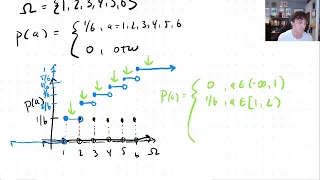 Ω = {1,2,3,4,5,6}
p(a) = { 1/6, a=1,2,3,4,5,6
0, otw
1
5/6
p(a)
1/6
1 2 3 4 5 6 Ω
P(a) = { 0, a∈(-∞,1)
1/6, a∈[1,2)